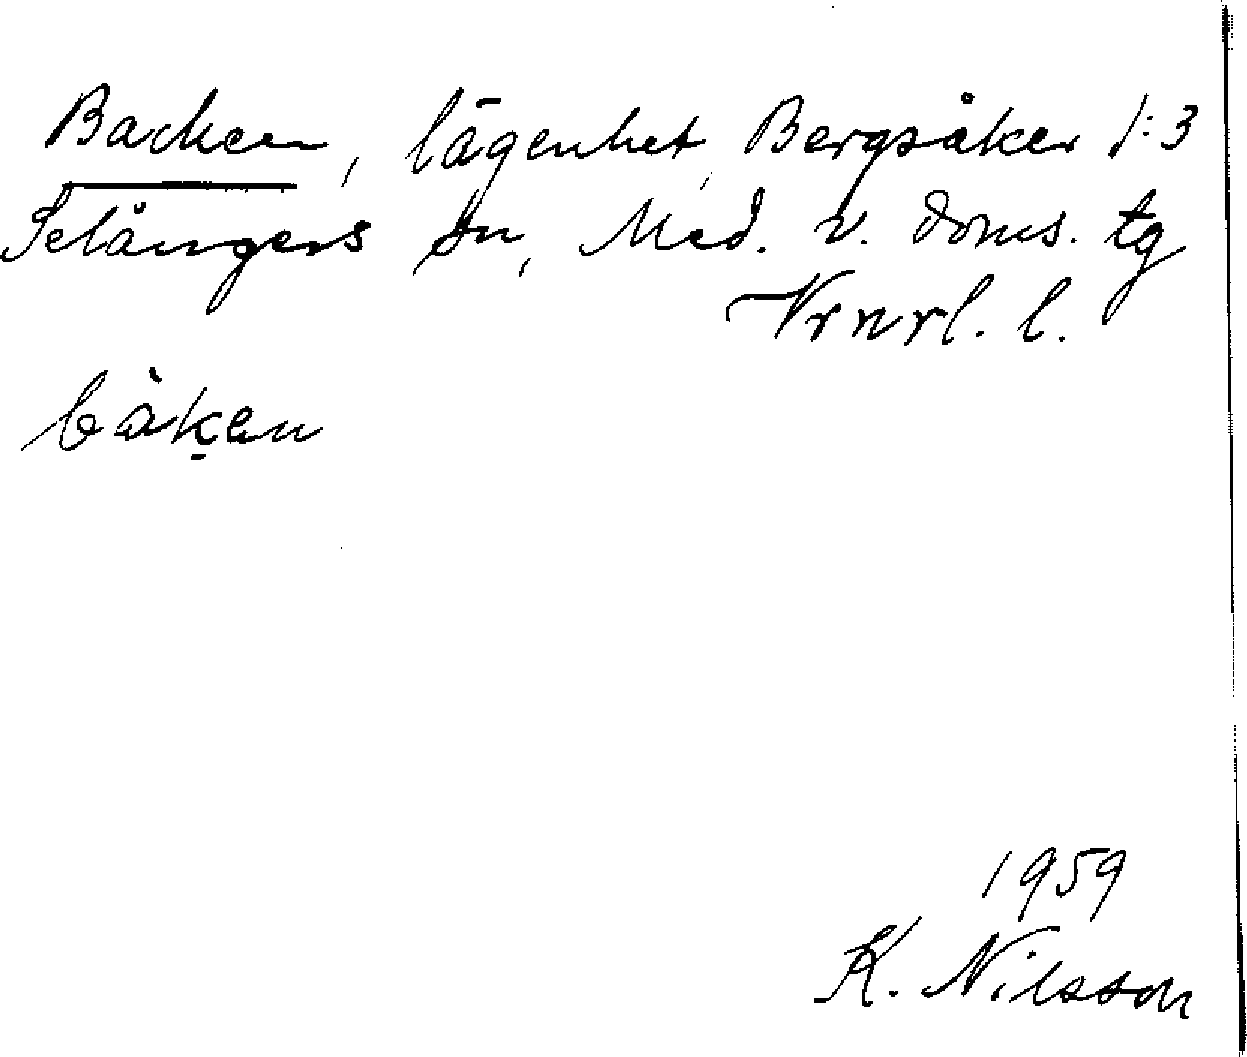 Backen, lägenhet, Bergsåker 1:3
Selångers sn, Med. v. doms. tg
Vrnrl. l.
bàk̠en
1959
K. Nilsson